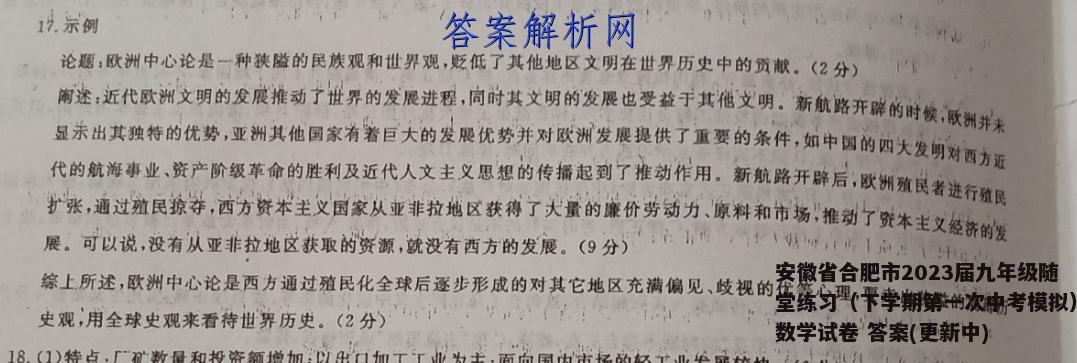 17.示例
答案解析网
论题:欧洲中心论是一种狭隘的民族观和世界观,贬低了其他地区文明在世界历史中的贡献。(2分)
阐述:近代欧洲文明的发展推动了世界的发展进程,同时其文明的发展也受益于其他文明。新航路开辟的时候,欧洲并未
显示出其独特的优势,亚洲其他国家有着巨大的发展优势并对欧洲发展提供了重要的条件,如中国的四大发明对西方近
代的航海事业、资产阶级革命的胜利及近代人文主义思想的传播起到了推动作用。新航路开辟后,欧洲殖民者进行殖民
扩张,通过殖民掠夺,西方资本主义国家从亚非拉地区获得了大量的廉价劳动力、原料和市场,推动了资本主义经济的发
展。可以说,没有从亚非拉地区获取的资源,就没有西方的发展。(9分)
综上所述,欧洲中心论是西方通过殖民化全球后逐步形成的对其它地区充满偏见、歧视的优等心理,
史观,用全球史观来看待世界历史。(2分)
安徽省合肥市2023届九年级随
堂练习(下学期第一次中考模拟)
数学试卷 答案(更新中)
18.(1)特点:厂矿数量和投资额增加;以出口加工工业为主;面向国内市场的轻工业发展较快